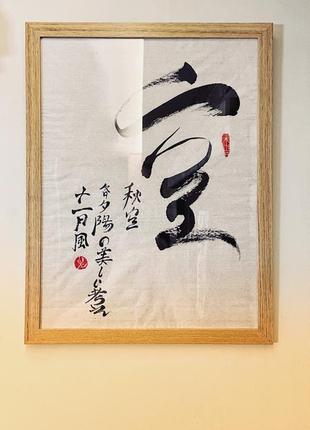 空
秋空
夕陽の美しい
十一月風